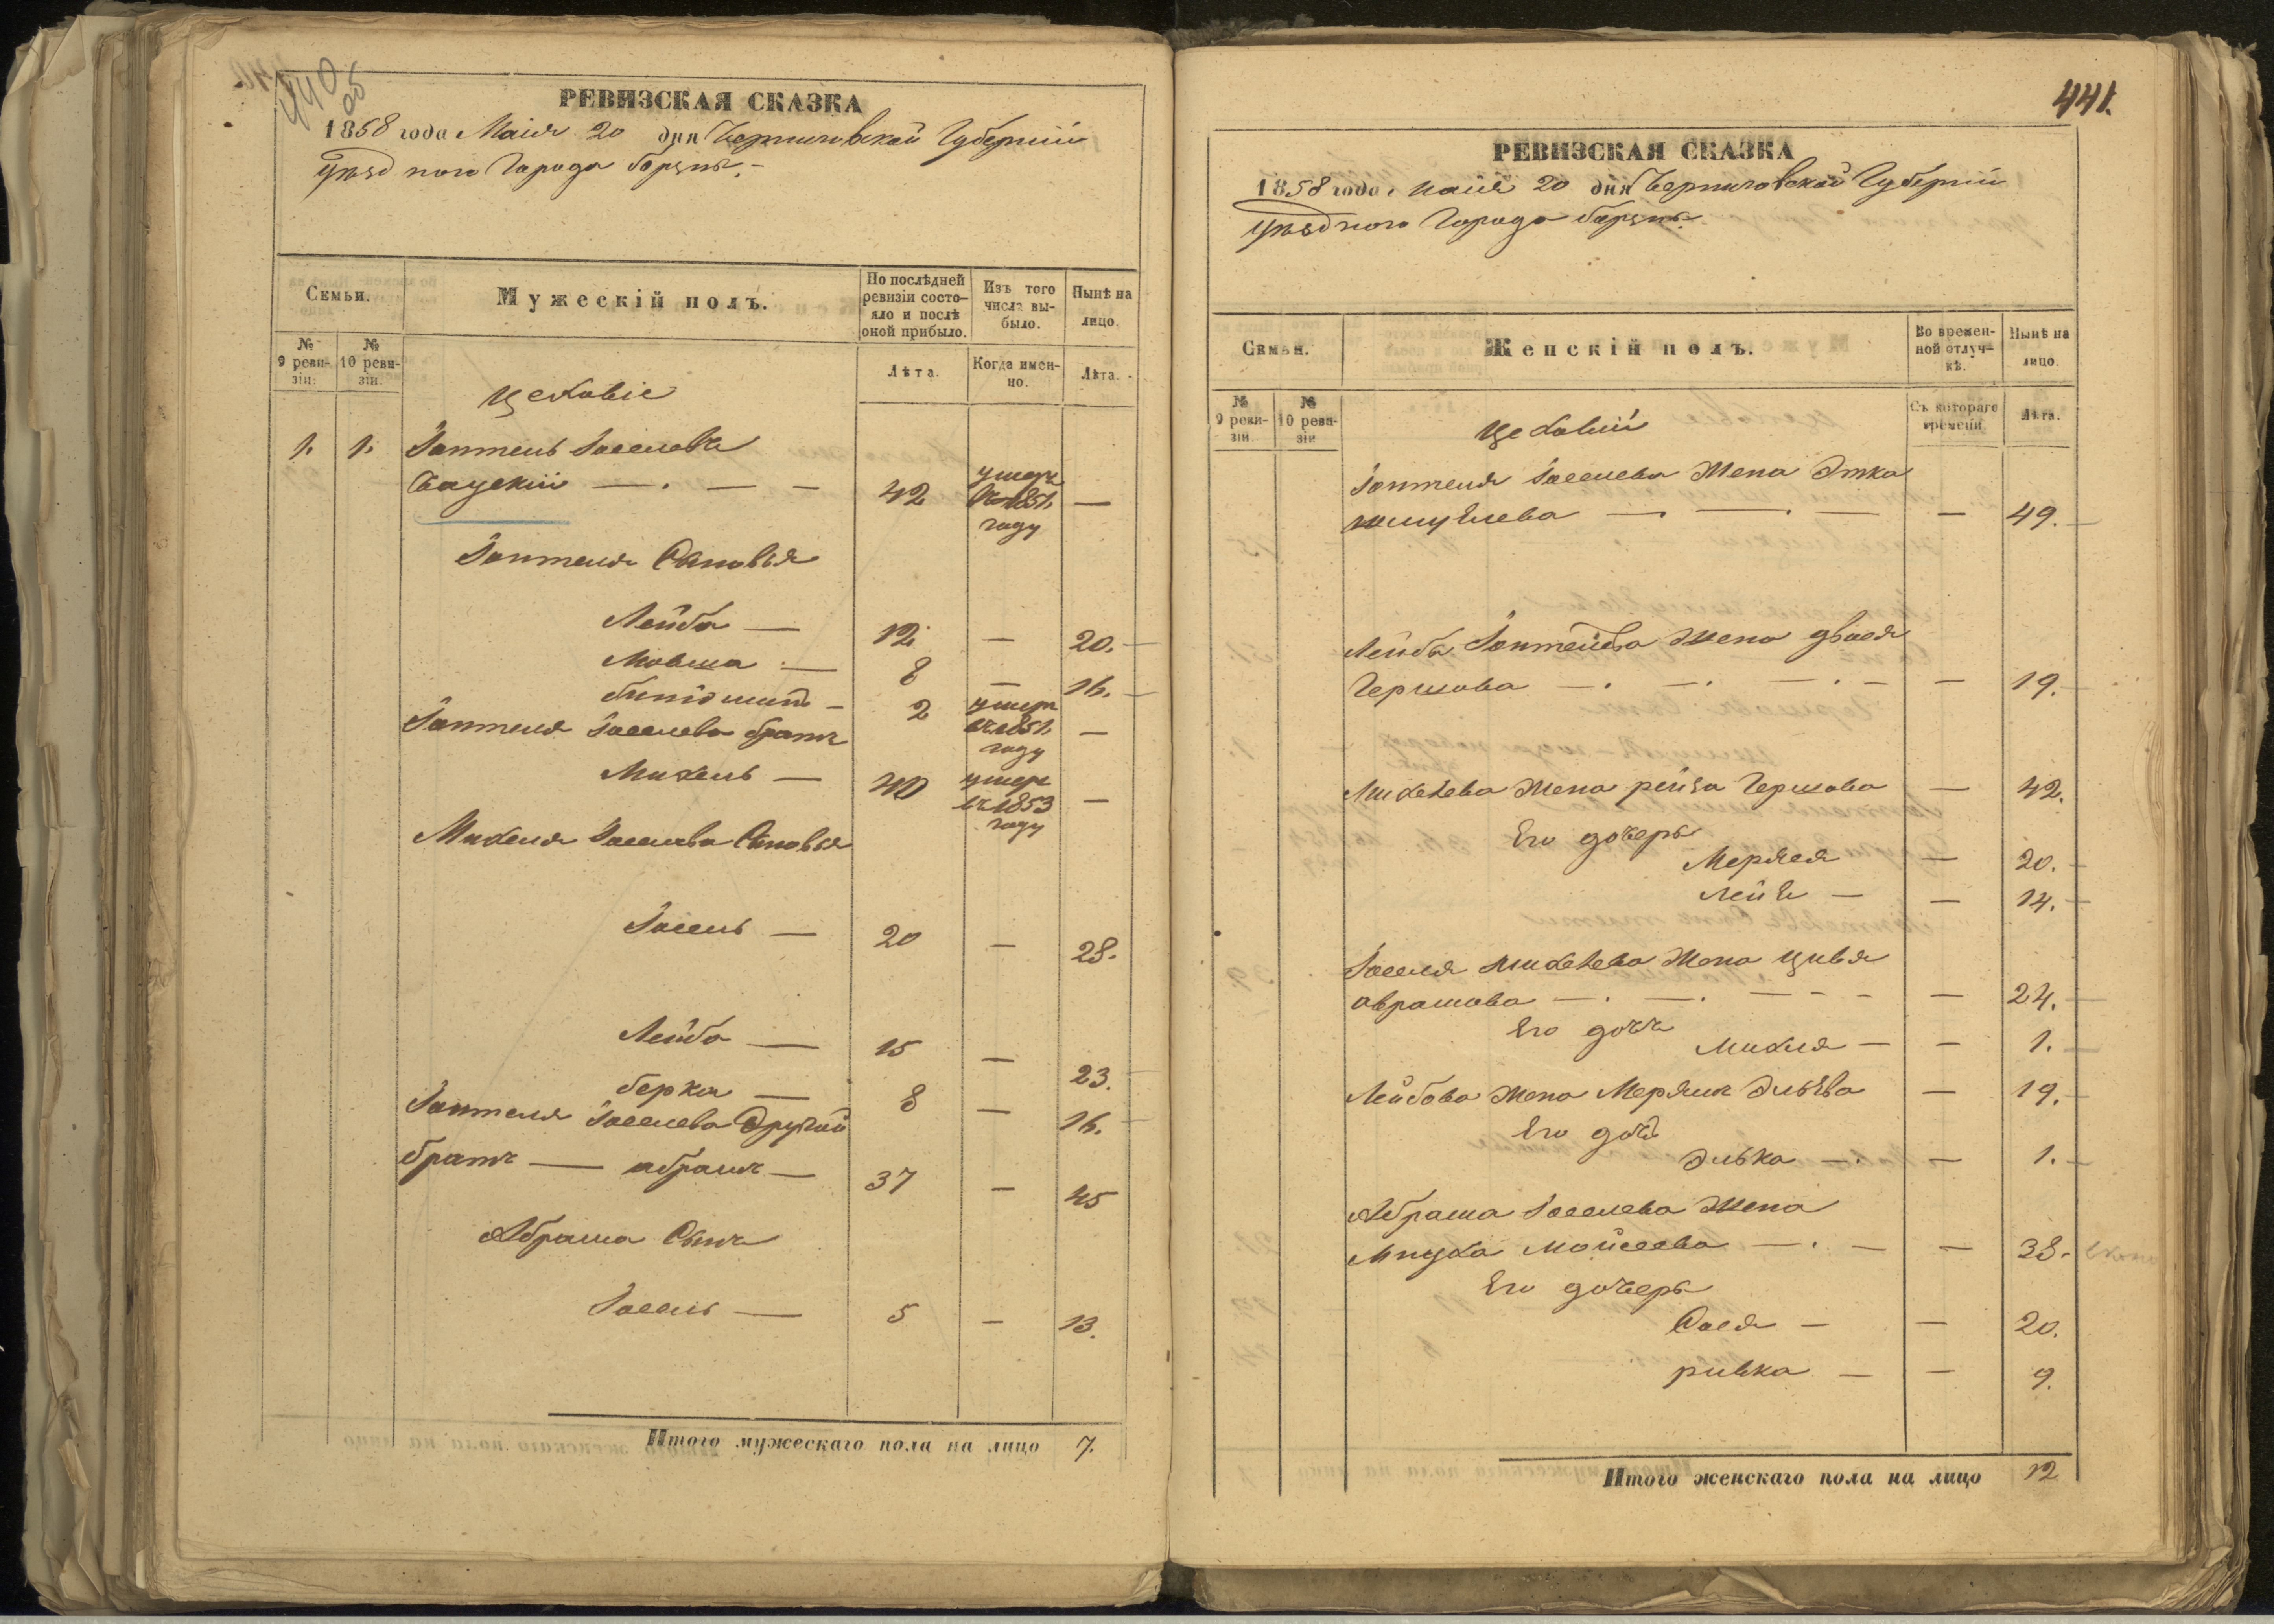 440
об
РЕВИЗСКАЯ СКАЗКА
1858 года Маія 20 дня Черниговской Губерніи
уѣзднаго Города борзны.
Семьи.
Мужескій полъ.
По послѣдней ревизіи состояло и послѣ оной прибыло.
Изъ того числа выбыло.
Нынѣ на лицо.
№ 9 ревизіи.
№ 10 ревизіи.
Лѣта.
Когда именно.
Лѣта.
Цеховіе
1. 1. Зоптель Іоселевъ
42 умеръ въ 1851 году —
Зоптеля Сыновья
Лейба — 12 — 20.
Мовша — 8 — 16.
2 умеръ въ 1851 году —
Зоптеля Іоселева братъ
Михель — 40 умеръ въ 1853 году —
Михеля Іоселева Сыновья
Іосель — 20 — 28.
Лейба — 15 — 23.
берка — 8 — 16.
Зоптеля Іоселева Другой
братъ — абрамъ — 37 — 45
Абрама Сынъ
Іосель — 5 — 13.
Итого мужескаго пола на лицо 7.
441.
РЕВИЗСКАЯ СКАЗКА
1858 года маія 20 дня Черниговской Губерніи
уѣзднаго Города борзны.
Семьи.
Женскій полъ.
Во временной отлучкѣ.
Нынѣ на лицо.
№ 9 ревизіи.
№ 10 ревизіи
Съ котораго времени.
Лѣта.
Цеховіи
Зоптеля Іоселева Жена Этка
шмуйлева — — — — 49.
Лейбы Зоптелева жена двося
Гершова — — — — — 19.
Михелева Жена рейза Гершова — 42.
Его дочеры
Меряся — 20.
Лея — — 14.
Іоселя Михелева Жена цивья
аврамова — — — — — — 24.
Его дочь
Михля — — 1.
Лейбова Жена Меряше Эльева — 19.
Его дочь
Элька — — 1.
Абрама Іоселева Жена
Мнуха Мойсеева — — — 38.
Его дочеры
Сося — — 20.
ривка — — 9.
Итого женскаго пола на лицо 12